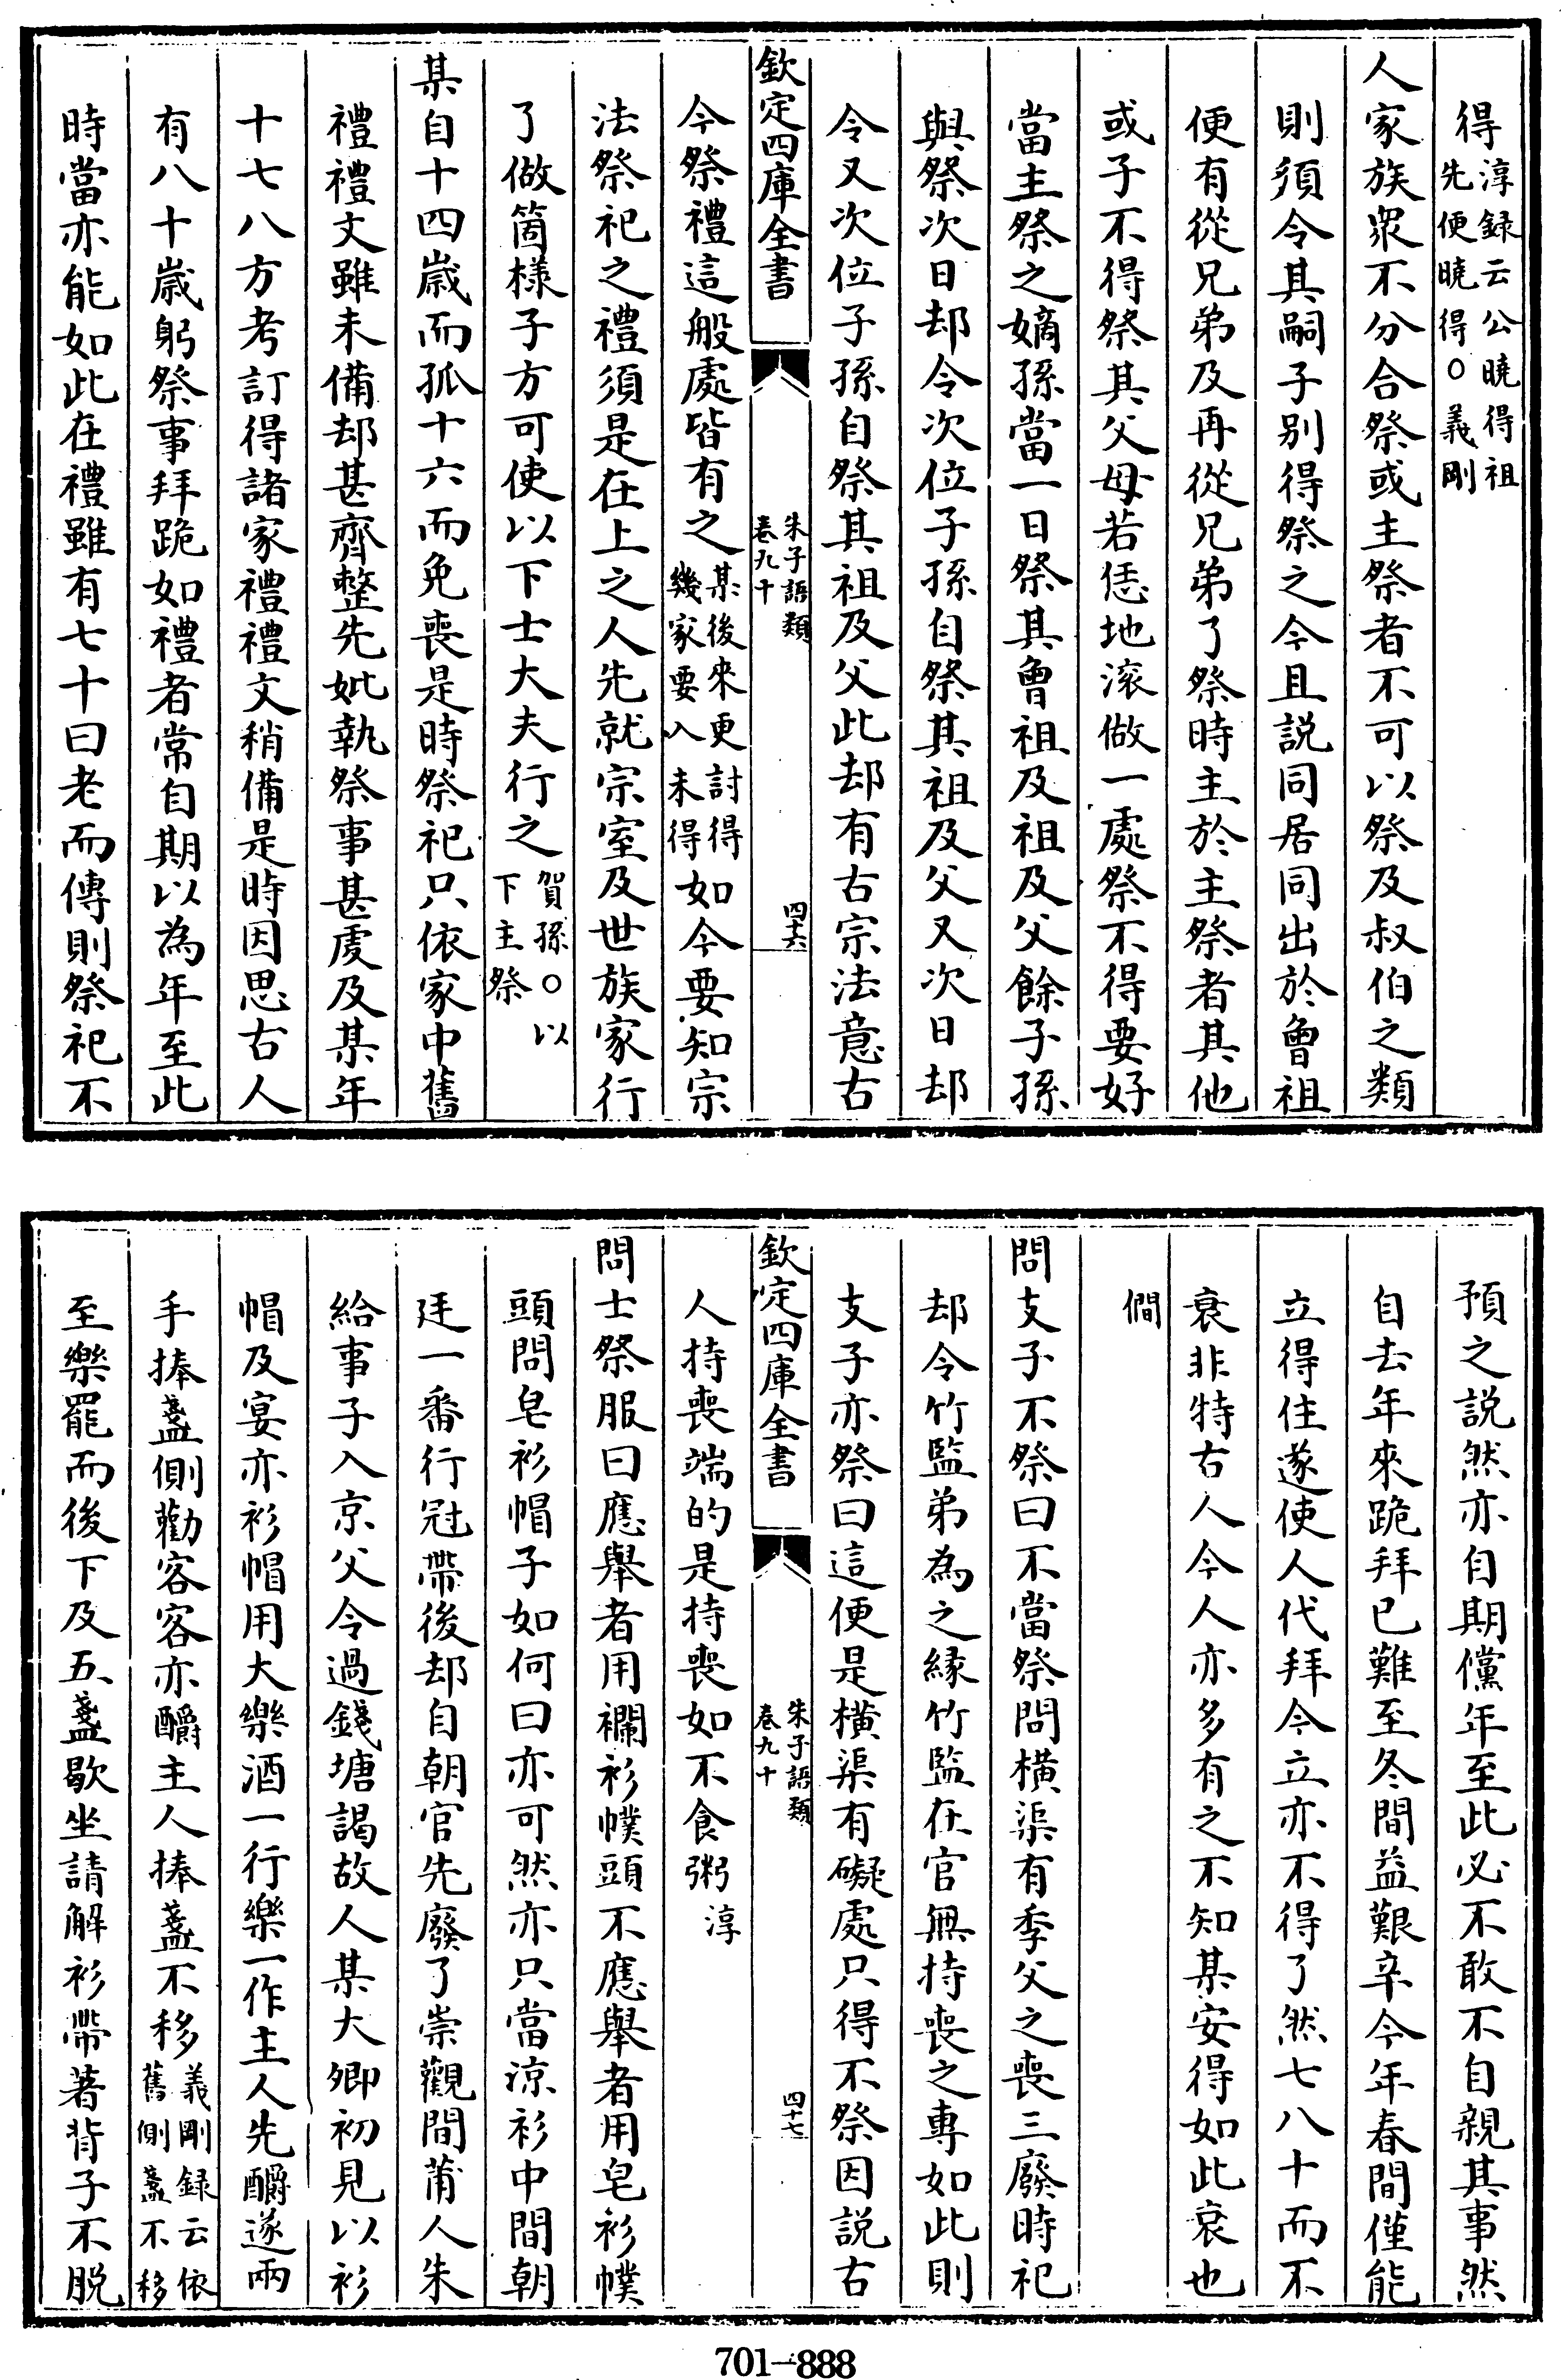 得淳録云公曉得祖先便曉得○義剛
人家族衆不分合祭或主祭者不可以祭及叔伯之類
則須令其嗣子别得祭之今且説同居同出於曾祖
便有從兄弟及再從兄弟了祭時主於主祭者其他
或子不得祭其父母若恁地滚做一處祭不得要好
當主祭之嫡孫當一日祭其曾祖及祖及父餘子孫
與祭次日却令次位子孫自祭其祖及父又次日却
令又次位子孫自祭其祖及父此却有古宗法意古
欽定四庫全書
朱子語類
卷九十
四十六
今祭禮這般處皆有之某後來更討得幾家要入未得如今要知宗
法祭祀之禮須是在上之人先就宗室及世族家行
了做箇様子方可使以下士大夫行之賀孫○以下主祭
某自十四歳而孤十六而免喪是時祭祀只依家中舊
禮禮文雖未備却甚齊整先妣執祭事甚虔及某年
十七八方考訂得諸家禮禮文稍備是時因思古人
有八十歳躬祭事拜跪如禮者常自期以為年至此
時當亦能如此在禮雖有七十曰老而傳則祭祀不
預之説然亦自期儻年至此必不敢不自親其事然
自去年來跪拜已難至冬間益艱辛今年春間僅能
立得住遂使人代拜今立亦不得了然七八十而不
衰非特古人今人亦多有之不知某安得如此衰也
僩
問支子不祭曰不當祭問横渠有季父之喪三廢時祀
却令竹監弟為之縁竹監在官無持喪之專如此則
支子亦祭曰這便是横渠有礙處只得不祭因説古
欽定四庫全書
朱子語類
卷九十
四十七
人持喪端的是持喪如不食粥淳
問士祭服曰應舉者用襴衫幞頭不應舉者用皂衫幞
頭問皂衫帽子如何曰亦可然亦只當涼衫中間朝
廷一番行冠帶後却自朝官先廢了崇觀間莆人朱
給事子入京父令過錢塘謁故人某大卿初見以衫
帽及宴亦衫帽用大樂酒一行樂一作主人先釂遂兩
手捧盞側勸客客亦釂主人捧盞不移義剛録云依舊側盞不移
至樂罷而後下及五盞歇坐請解衫帶著背子不脱
701-888